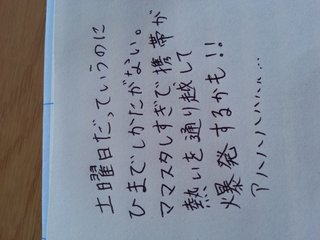 土曜日だっていうのに
ひまでしかたがない。
ママスタしすぎで携帯が
熱いを通り越して
爆発するかも!!
アハハハハハハ…